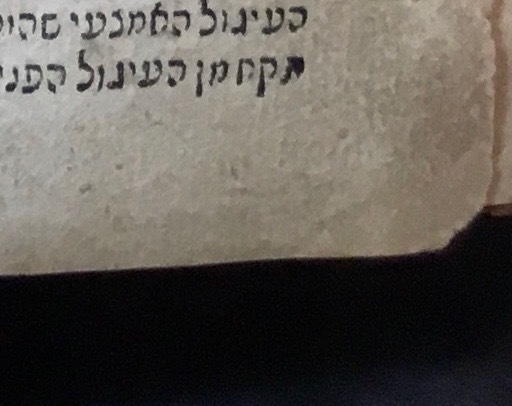 העיגול האמצעי שהי
תקח מן העיגול הפני